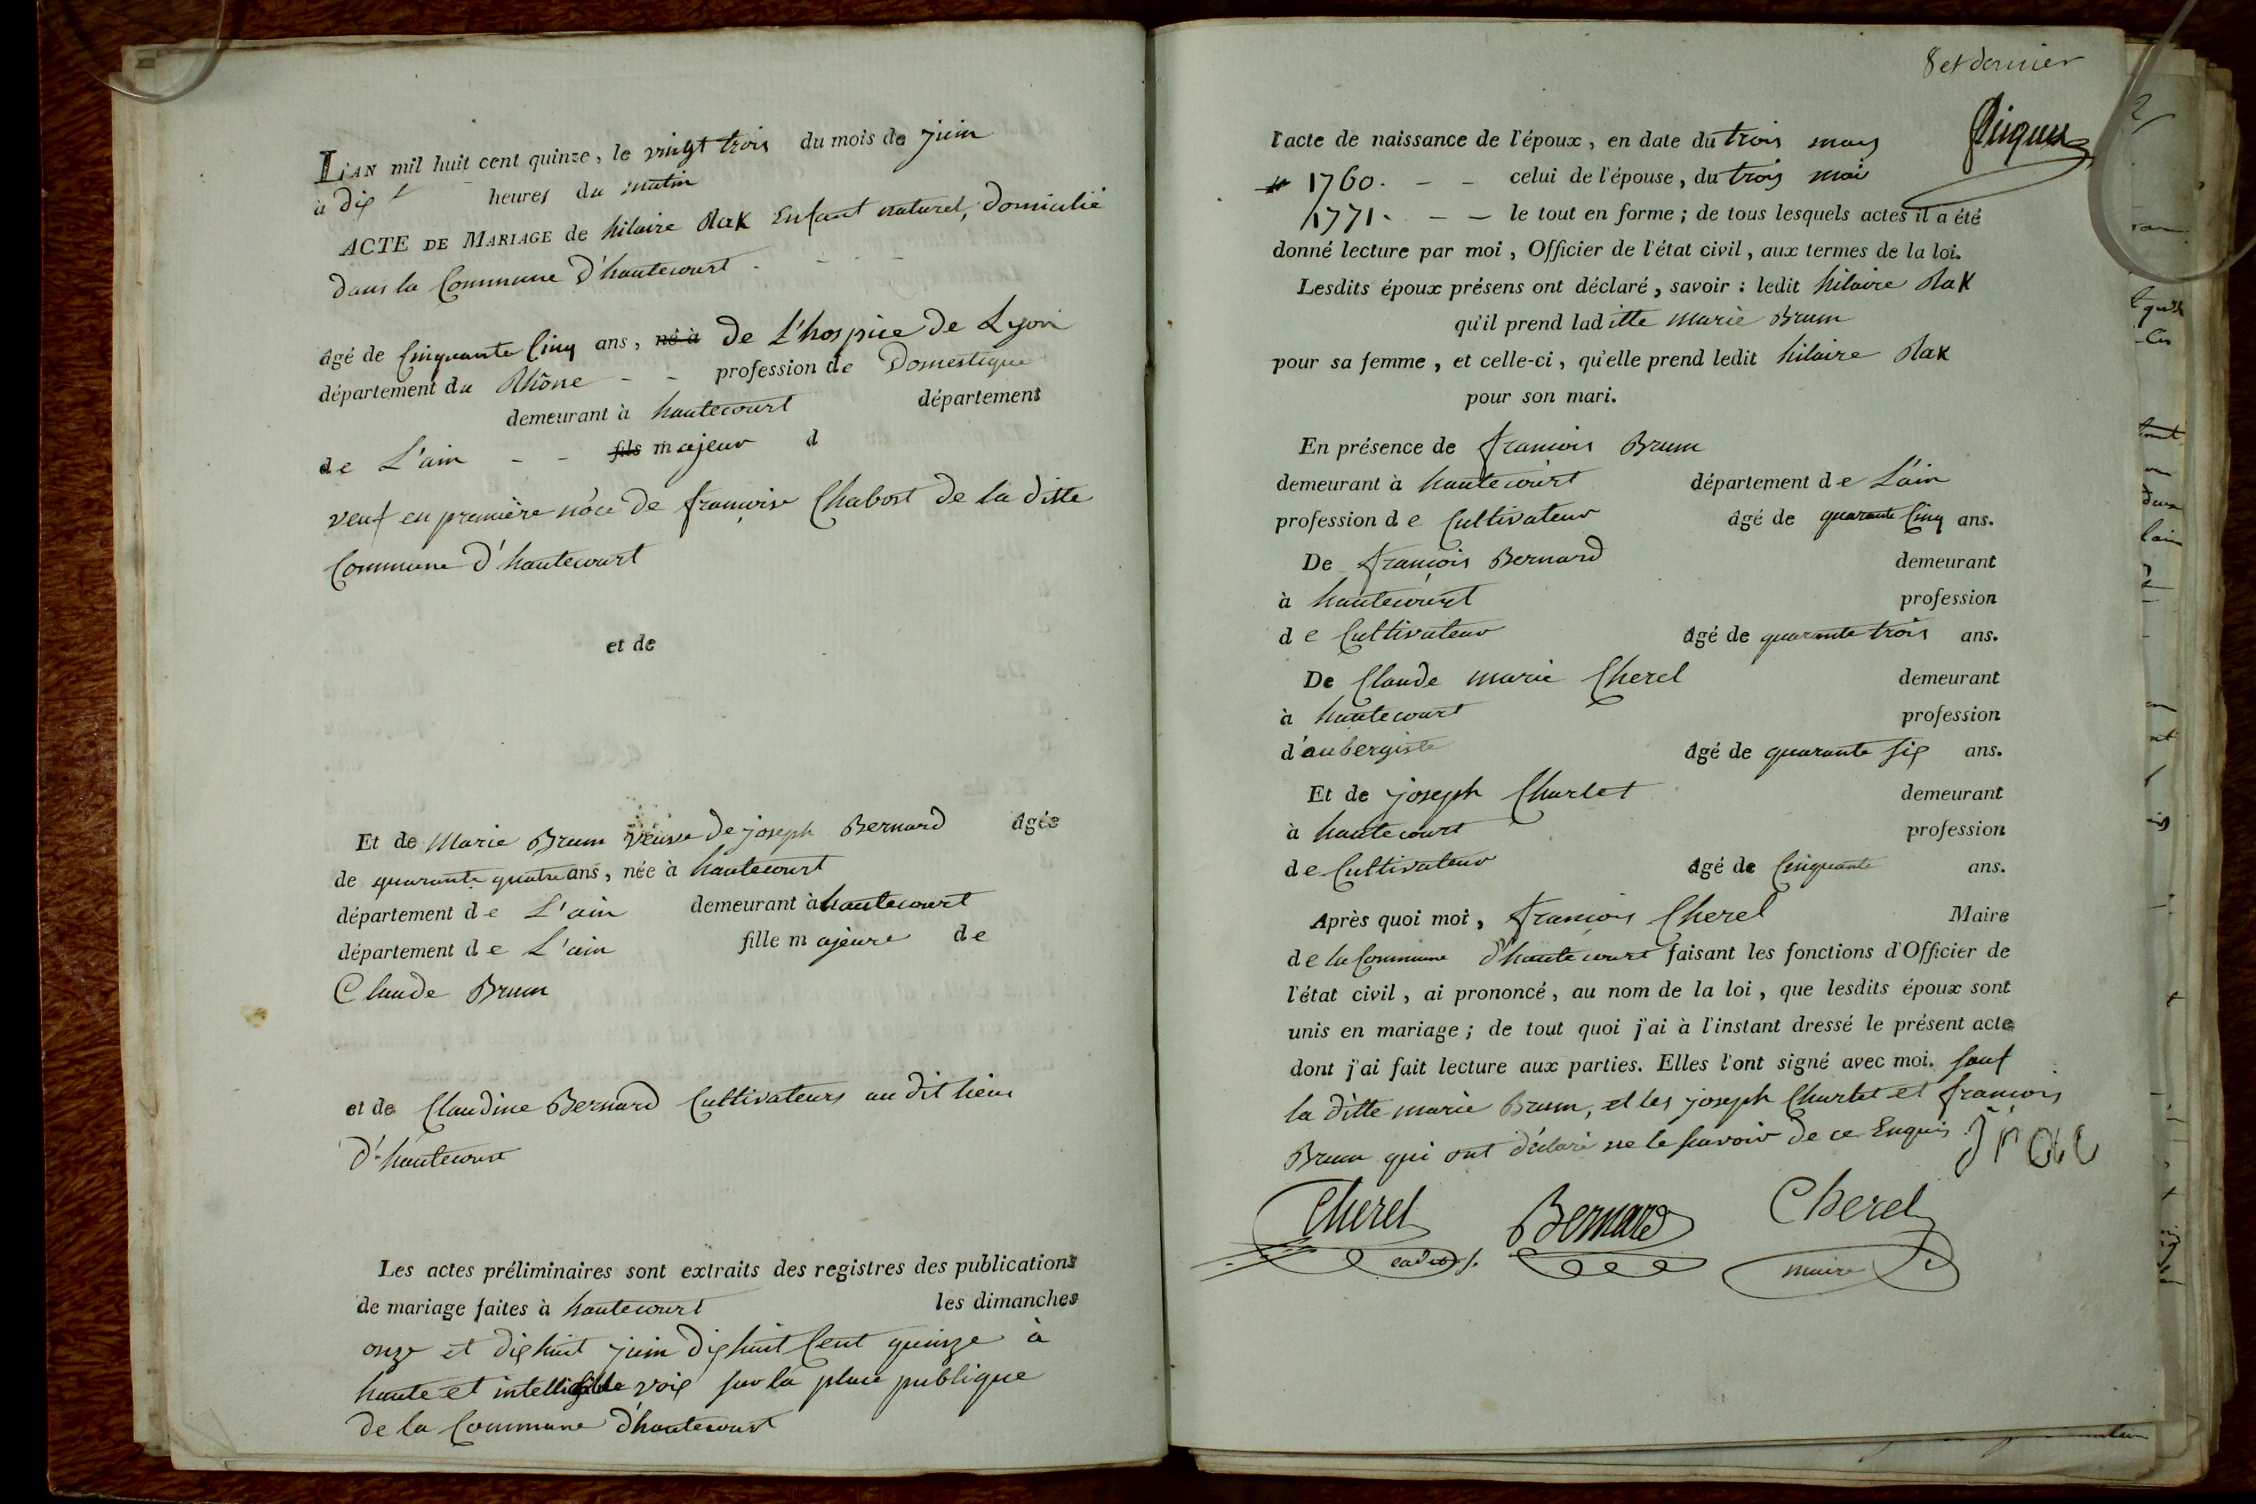 L'AN mil huit cent quinze, le vingt trois du mois de juin
à dix heures du matin
ACTE DE MARIAGE de hilaire Rak Enfant naturel, domicilié
dans la Commune d'hautecourt
âgé de Cinquante Cinq ans, né à de L'hospice de Lyon
département du Rhône - - profession de Domestique
demeurant à hautecourt département
de L'ain - - fils majeur d
veuf en première nôce de françoise Chabost de la ditte
Commune d'hautecourt
et de
Et de Marie Brum veuve de joseph Bernard âgée
de quarante quatre ans, née à hautecourt
département de L'ain demeurant à hautecourt
département de L'ain fille majeure de
Claude Brum
et de Claudine Bernard Cultivateurs au dit lieu
d'hautecourt
Les actes préliminaires sont extraits des registres des publications
de mariage faites à hautecourt les dimanches
onze et dix huit juin dix huit Cent quinze à
haute et intelligible voix sur la place publique
de la Commune d'hautecourt
8 et dernier
l'acte de naissance de l'époux, en date du trois mars
1760. - - celui de l'épouse, du trois mai
1771. - - le tout en forme; de tous lesquels actes il a été
donné lecture par moi, Officier de l'état civil, aux termes de la loi.
Lesdits époux présens ont déclaré, savoir: ledit hilaire Rak
qu'il prend laditte marie Brum
pour sa femme, et celle-ci, qu'elle prend ledit hilaire Rak
pour son mari.
En présence de francois Brum
demeurant à hautecourt département de L'ain
profession de Cultivateur âgé de quarante Cinq ans.
De françois Bernard demeurant
à hautecourt profession
de Cultivateur âgé de quarante trois ans.
De Claude marie Cherel demeurant
à hautecourt profession
d'aubergiste âgé de quarante six ans.
Et de joseph Charlet demeurant
à hautecourt profession
de Cultivateur âgé de Cinquante ans.
Après quoi moi, françois Cherel Maire
de la Commune d'hautecourt faisant les fonctions d'Officier de
l'état civil, ai prononcé, au nom de la loi, que lesdits époux sont
unis en mariage; de tout quoi j'ai à l'instant dressé le présent acte
dont j'ai fait lecture aux parties. Elles l'ont signé avec moi. sauf
la ditte marie Brum, et les joseph Charlet et françois
Brum qui ont déclaré ne le savoir de ce Enquis
Cherel Bernard Cherel
maire